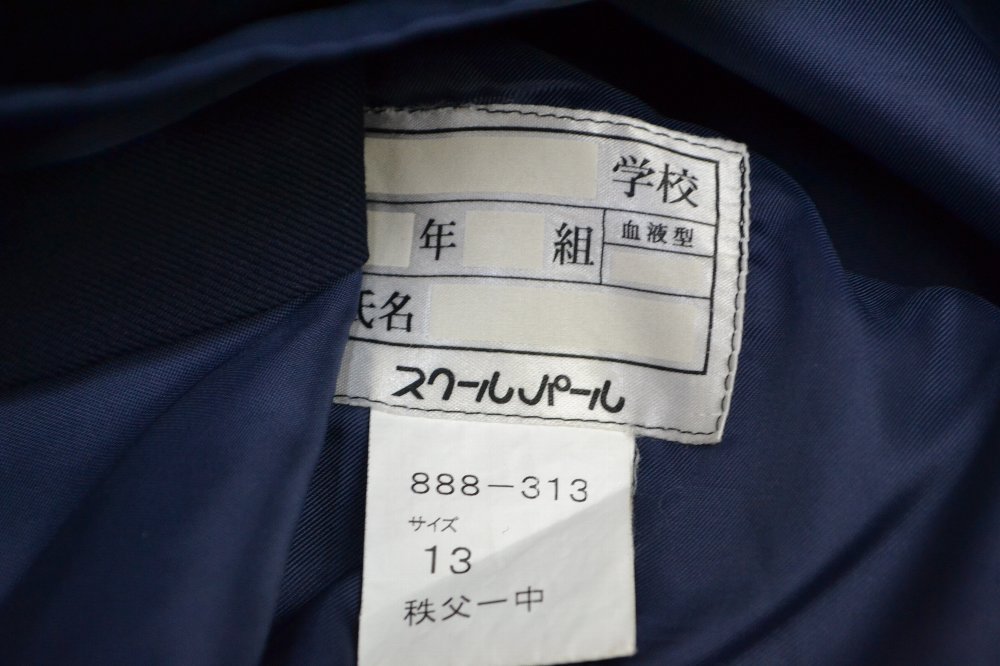 学校
年 組 血液型
氏名
スクールパール
888-313
サイズ
13
秩父一中